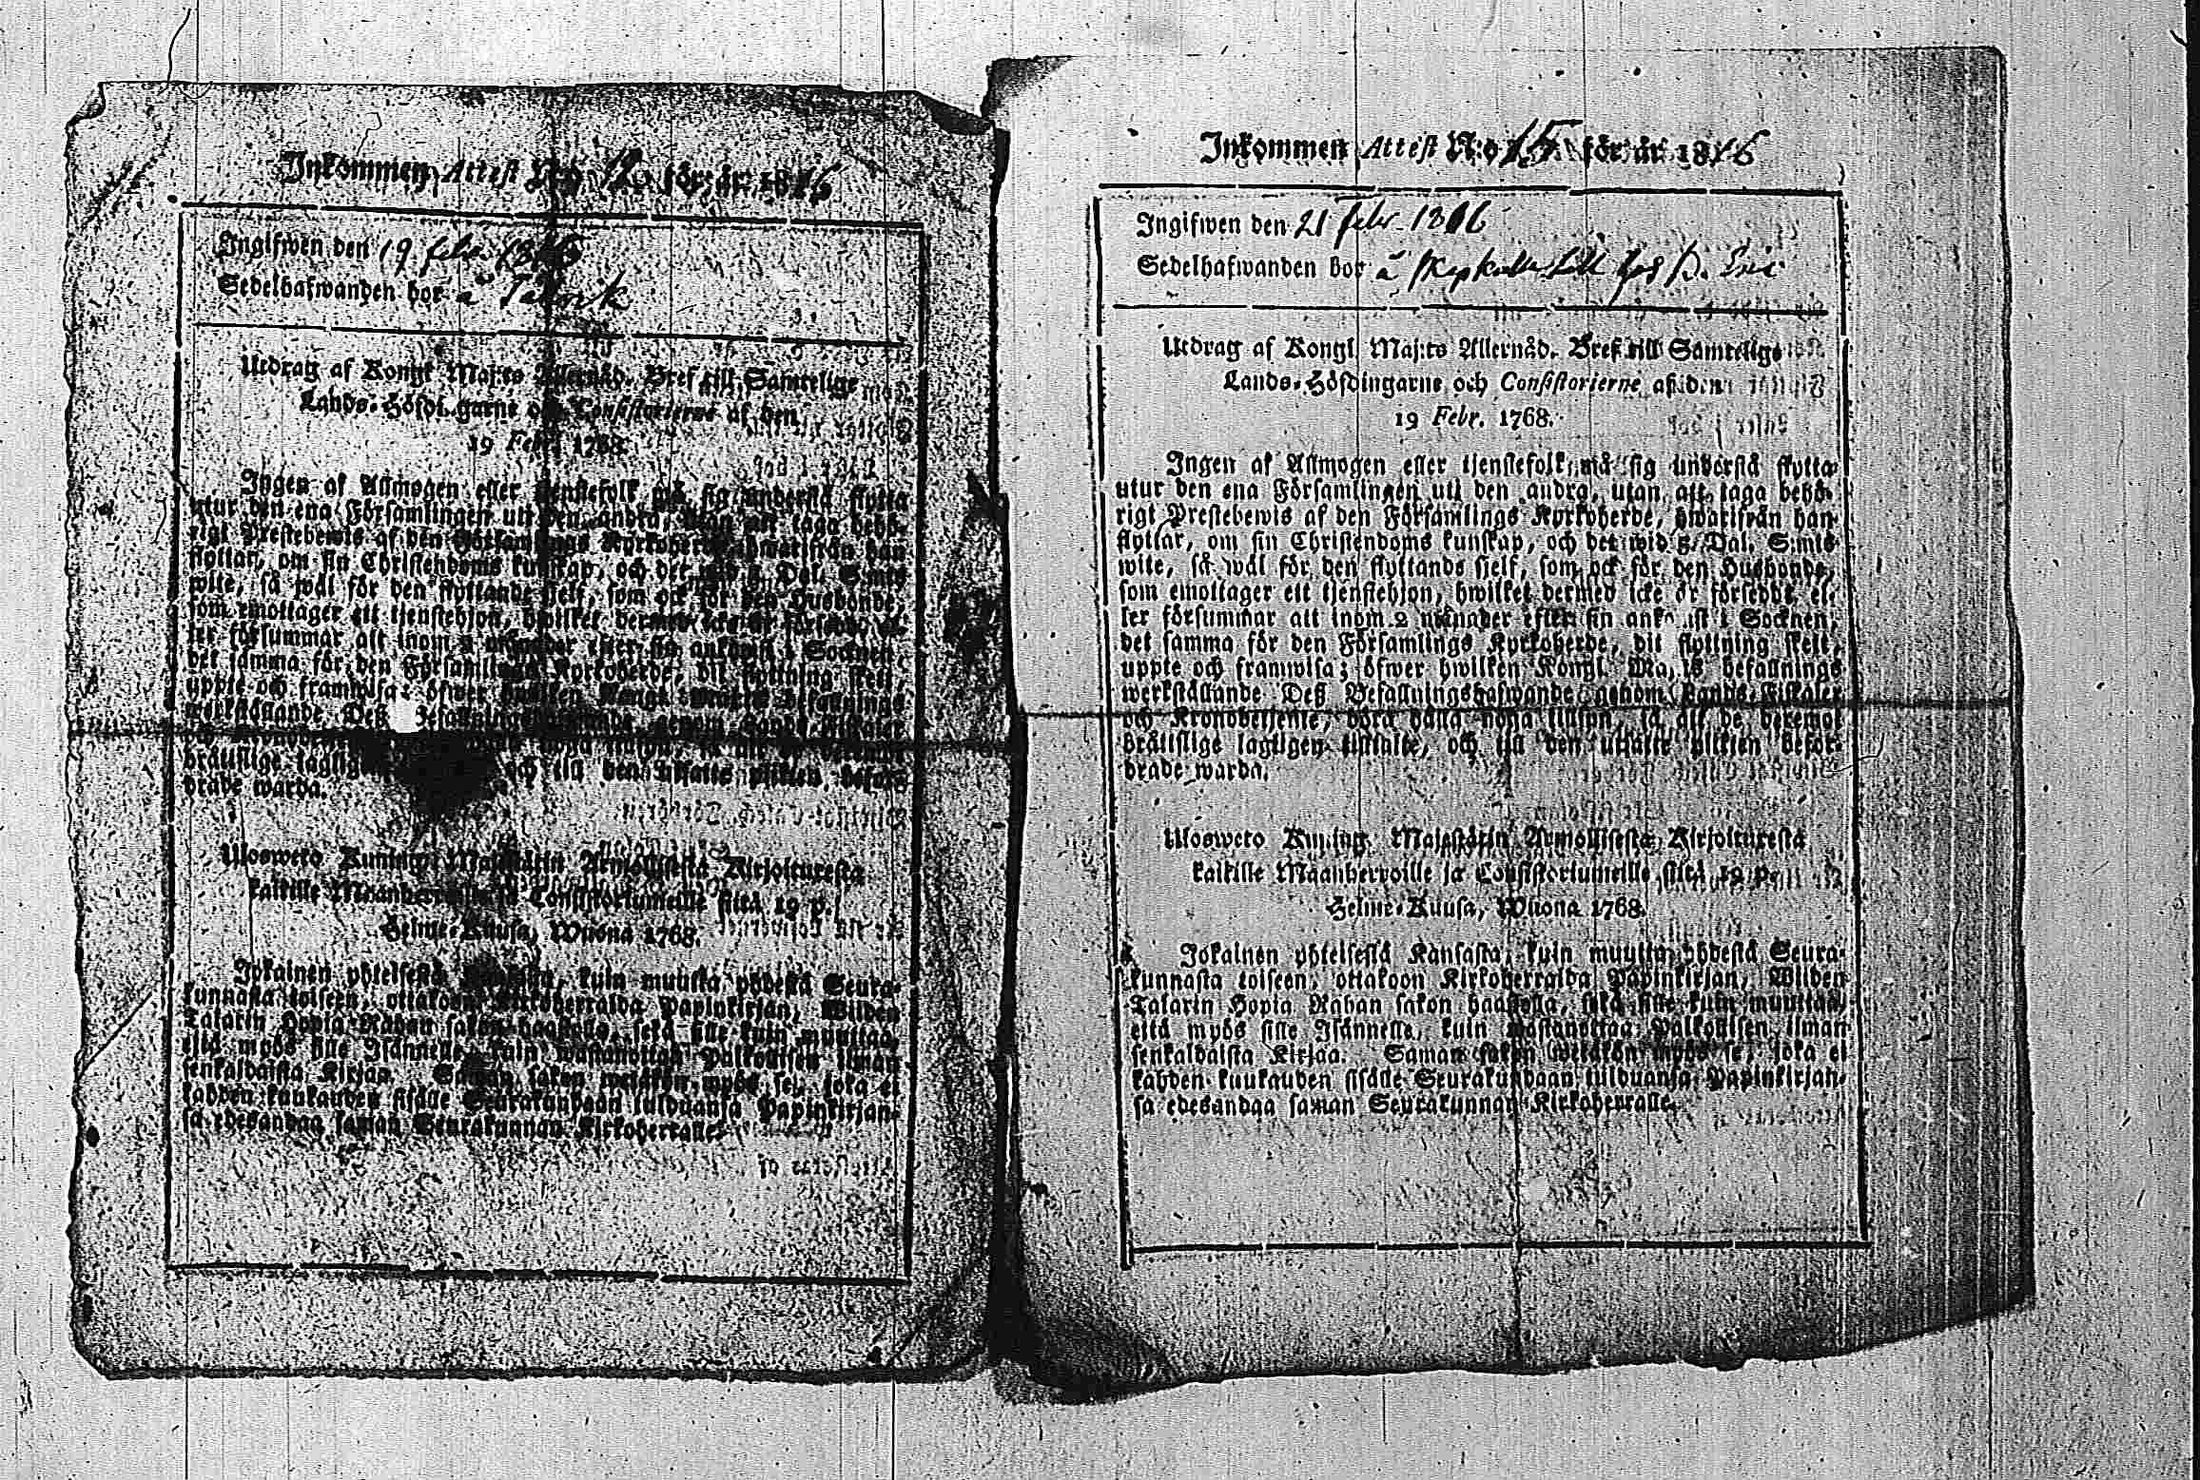 Inkommen Attest N:o 12. för år 1816
Ingifwen den 19 febr. 1816
Sedelhafwanden bor å
Utdrag af Kongl Maj:ts Allernåd. Bref till Samtelige
Lands-Höfdingarne och Consistorierne af den
19 Febr. 1768.
Ingen af Allmogen eller tjenstefolk må sig understå flytta
utur den ena Församlingen uti den andra, utan att taga behö-
rigt Prestebewis af den Församlings Kyrkoherde, hwarifrån han
flyttar, om sin Christendoms kunskap, och det wid 5 Dal. S:mts
wite, så wäl för den flyttande sjelf, som ock för den Husbonde,
som emottager ett tjenstehjon, hwilket dermed icke är försedt, el-
ler försummar att inom 2 månader efter sin ankomst i Socknen,
det samma för den Församlings Kyrkoherde, dit flyttning skett,
uppte och framwisa; öfwer hwilken Kongl. Maj:ts befallnings
werkställande Deß Befallningshafwande genom Lands-Fiskaler
brättslige lagligen och till den utsatte plikten beför-
drade warda.
Ulosweto Kuning. Majestätin Armollisesta Kirjoituxesta
kaikille Maanherroille ja Consistoriumeille siitä 19 p.
Helme-Kuusa, Wuona 1768.
Jokainen yhteisestä Kansasta, kuin muutta yhdestä Seura-
kunnasta toiseen, ottakoon Kirkoherralda Papinkirjan, Wiiden
Talarin Hopia Rahan sakon haastolla, sekä sille kuin muuttaa,
että myös sille Isännelle, kuin wastanottaa Palkollisen ilman
senkaldaista Kirjaa. Saman sakon wetäkön myös se, joka ei
kahden kuukauden sisälle Seurakundaan tulduansa Papinkirjan-
sa edesandaa saman Seurakunnan Kirkoherralle.
Inkommen Attest N:o 15. för år 1816
Ingifwen den 21 Febr. 1816
Sedelhafwanden bor å
Utdrag af Kongl Maj:ts Allernåd. Bref till Samtelige
Lands-Höfdingarne och Consistorierne af den
19 Febr. 1768.
Ingen af Allmogen eller tjenstefolk, må sig understå flytta
utur den ena Församlingen uti den andra, utan att taga behö-
rigt Prestebewis af den Församlings Kyrkoherde, hwarifrån han
flyttar, om sin Christendoms kunskap, och det wid 5 Dal. S:mts
wite, så wäl för den flyttande sjelf, som ock för den Husbonde,
som emottager ett tjenstehjon, hwilket dermed icke är försedt, el-
ler försummar att inom 2 månader efter sin ankomst i Socknen,
det samma för den Församlings Kyrkoherde, dit flyttning skett,
uppte och framwisa; öfwer hwilken Kongl. Maj:ts befallnings
werkställande Deß Befallningshafwande genom Lands-Fiskaler
och Kronobetjente, böra hålla noga tillsyn, så att de, deremot
brättslige lagligen tilltalte, och till den utsatte plikten beför-
drade warda.
Ulosweto Kuning. Majestätin Armollisesta Kirjoituxesta
kaikille Maanherroille ja Consistoriumeille siitä 19 p.
Helme-Kuusa, Wuona 1768.
Jokainen yhteisestä Kansasta, kuin muutta yhdestä Seura-
kunnasta toiseen, ottakoon Kirkoherralda Papinkirjan, Wiiden
Talarin Hopia Rahan sakon haastolla, sekä sille kuin muuttaa,
että myös sille Isännelle, kuin wastanottaa Palkollisen ilman
senkaldaista Kirjaa. Saman sakon wetäkön myös se, joka ei
kahden kuukauden sisälle Seurakundaan tulduansa Papinkirjan-
sa edesandaa saman Seurakunnan Kirkoherralle.